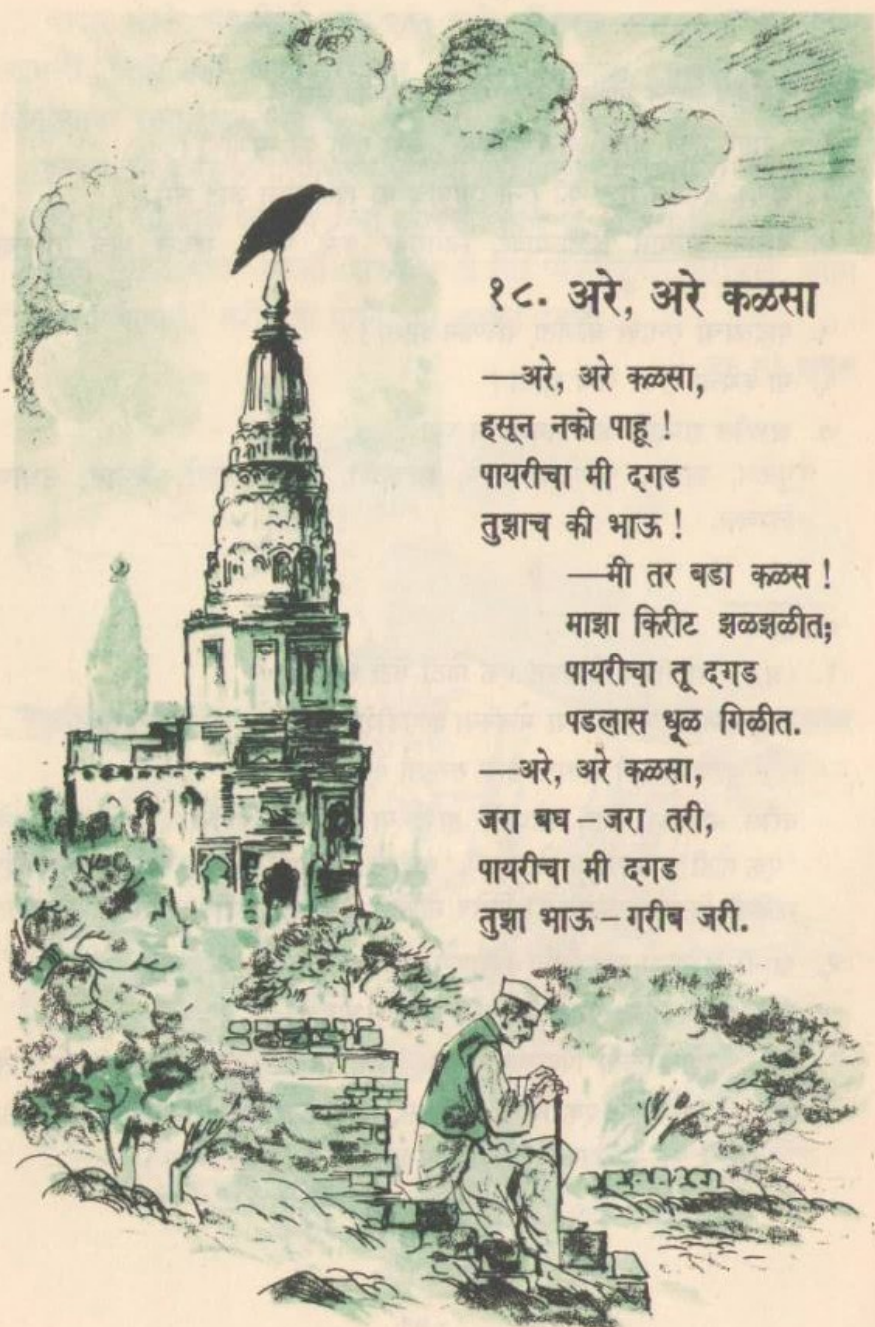 १८. अरे, अरे कळसा
—अरे, अरे कळसा,
हसून नको पाहू !
पायरीचा मी दगड
तुझाच की भाऊ !
—मी तर बडा कळस !
माझा किरीट झळझळीत;
पायरीचा तू दगड
पडलास धूळ गिळीत.
—अरे, अरे कळसा,
जरा बघ – जरा तरी,
पायरीचा मी दगड
तुझा भाऊ – गरीब जरी.